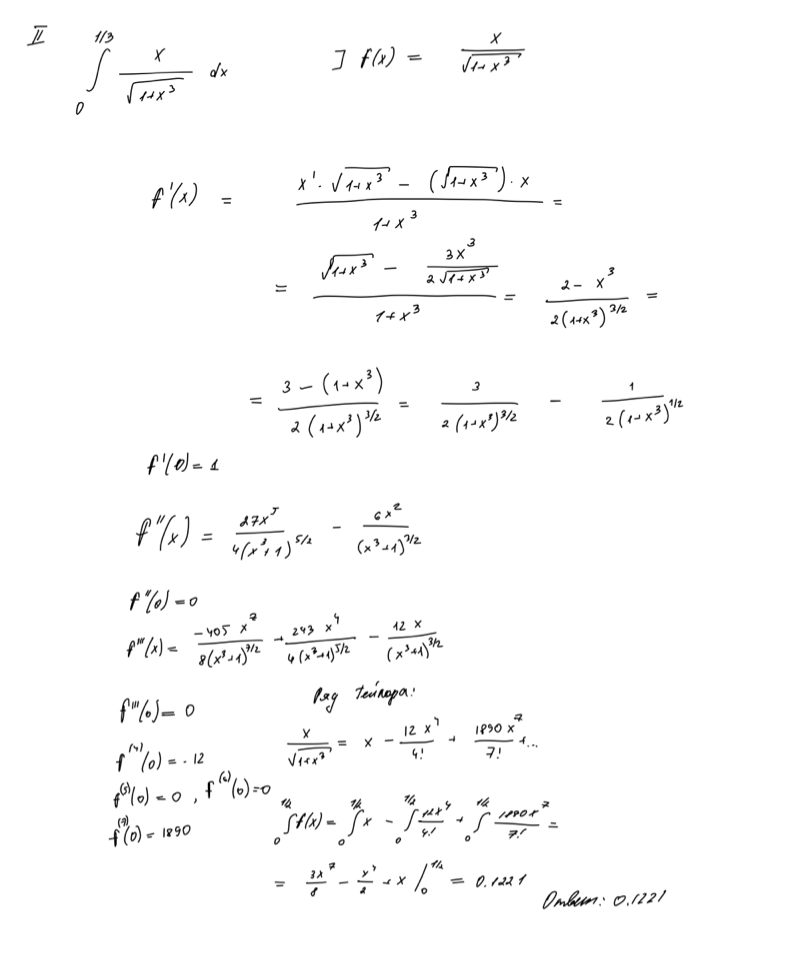 II ∫₀^{1/3} x/√(1+x³) dx ] f(x) = x/√(1+x³)
f'(x) = (x'·√(1+x³) − (√(1+x³))·x)/(1+x³) =
= (√(1+x³) − 3x³/(2√(1+x³)))/(1+x³) = (2−x³)/(2(1+x³)^{3/2}) =
= (3−(1+x³))/(2(1+x³)^{3/2}) = 3/(2(1+x³)^{3/2}) − 1/(2(1+x³)^{1/2})
f'(0)=1
f''(x) = 27x⁵/(4(x³+1)^{5/2}) − 6x²/((x³+1)^{3/2})
f''(0)=0
f'''(x) = −405x⁷/(8(x³+1)^{7/2}) + 243x⁴/(4(x³+1)^{5/2}) − 12x/((x³+1)^{3/2})
f'''(0)=0
Ряд Тейлора:
f⁽⁴⁾(0) = -12
x/√(1+x³) = x − 12x⁴/4! + 1890x⁷/7! +...
f⁽⁵⁾(0)=0, f⁽⁶⁾(0)=0
f⁽⁷⁾(0)=1890
∫₀^{1/2} f(x) = ∫₀^{1/2} x − ∫₀^{1/2} 12x⁴/4! + ∫₀^{1/2} 1890x⁷/7! =
= 3x⁷/8 − x⁴/2 + x |₀^{1/2} = 0.1221
Ответ: 0.1221